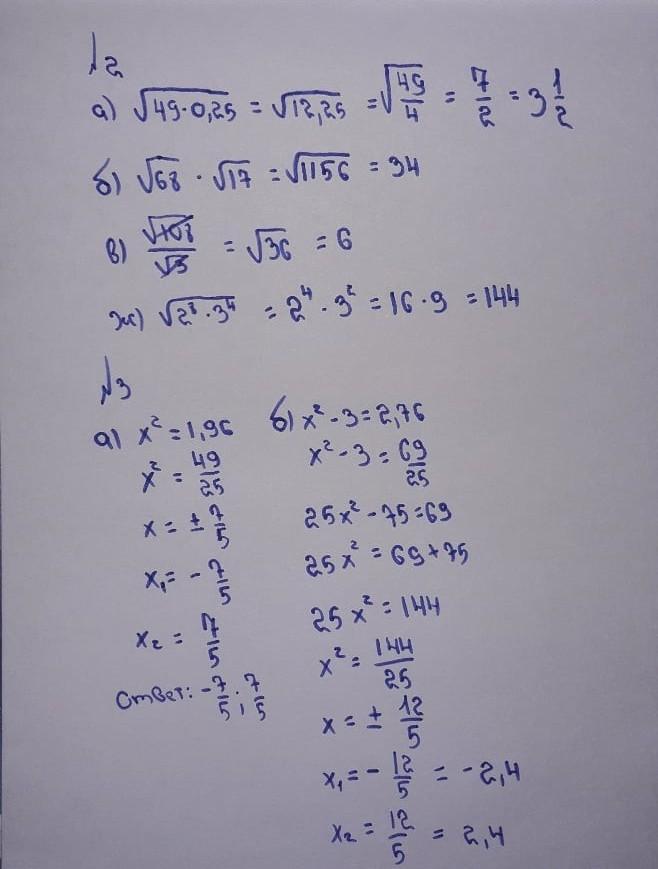 №2
а) √49·0,25 = √12,25 = √49/4 = 7/2 = 3 1/2
б) √68 · √17 = √1156 = 34
в) √108/√3 = √36 = 6
ж) √2⁸·3⁴ = 2⁴·3² = 16·9 = 144
№3
а) x² = 1,96
x² = 49/25
x = ± 7/5
x₁ = - 7/5
x₂ = 7/5
Ответ: -7/5; 7/5
б) x² - 3 = 2,76
x² - 3 = 69/25
25x² - 75 = 69
25x² = 69 + 75
25x² = 144
x² = 144/25
x = ± 12/5
x₁ = - 12/5 = -2,4
x₂ = 12/5 = 2,4